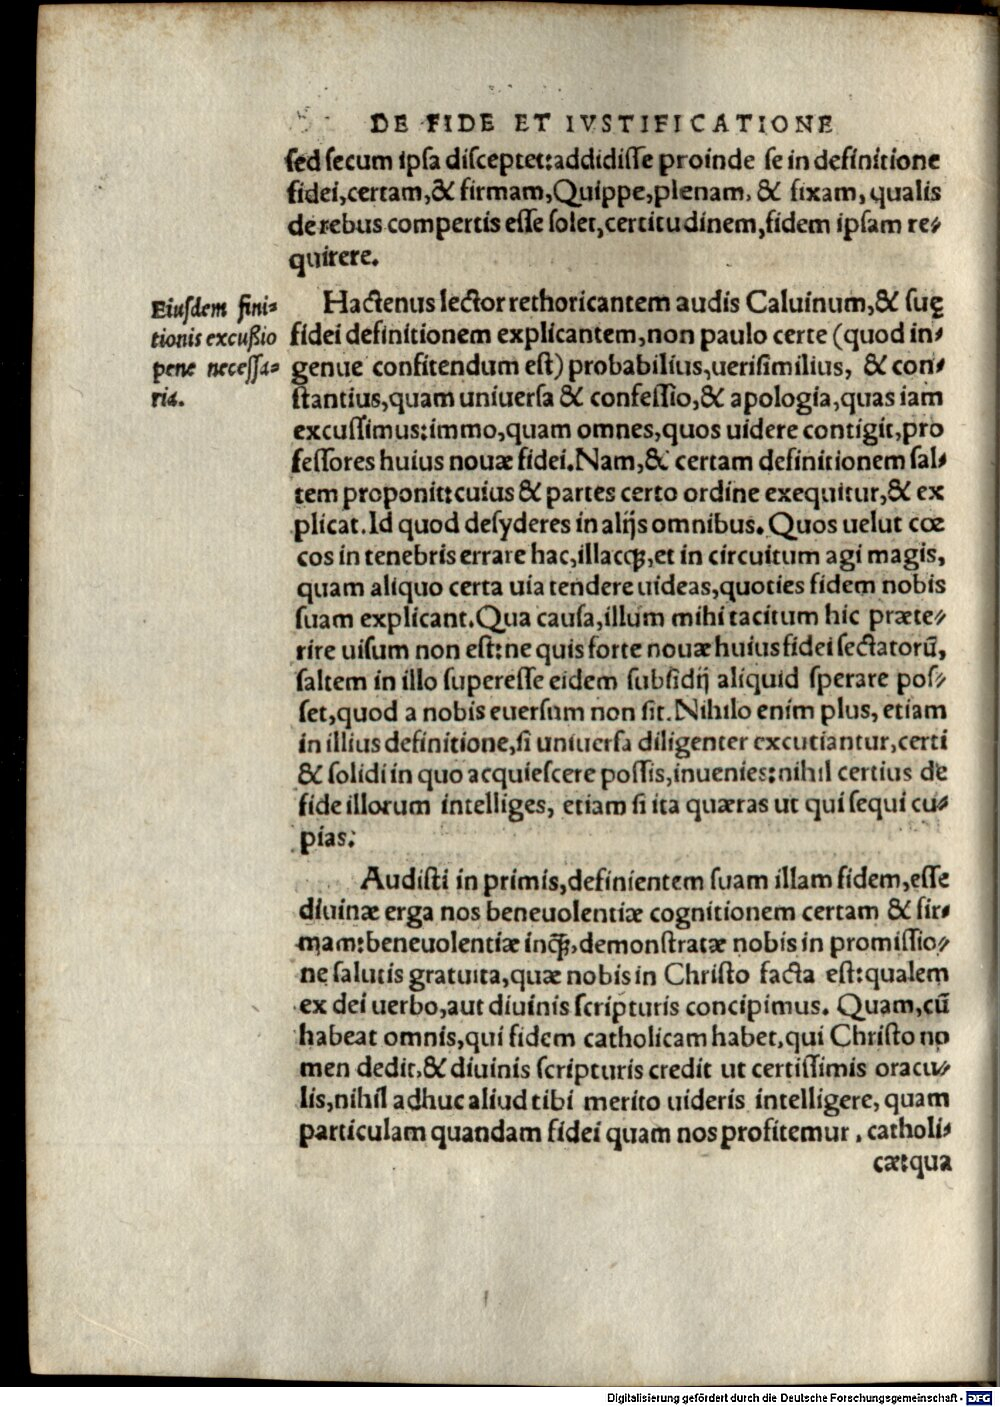 DE FIDE ET IVSTIFICATIONE
sed secum ipsa disceptet: addidisse proinde se in definitione
fidei, certam, & firmam, Quippe, plenam, & fixam, qualis
de rebus compertis esse solet, certitudinem, fidem ipsam re⸗
quirere.
Eiusdem fini⸗
tionis excußio
pene necessa⸗
ria.
Hactenus lector rethoricantem audis Caluinum, & suę
fidei definitionem explicantem, non paulo certe (quod in⸗
genue confitendum est) probabilius, uerisimilius, & con⸗
stantius, quam uniuersa & confessio, & apologia, quas iam
excussimus: immo, quam omnes, quos uidere contigit, pro
fessores huius nouæ fidei. Nam, & certam definitionem sal⸗
tem proponit: cuius & partes certo ordine exequitur, & ex
plicat. Id quod desyderes in alijs omnibus. Quos uelut cœ
cos in tenebris errare hac, illacq̃, et in circuitum agi magis,
quam aliquo certa uia tendere uideas, quoties fidem nobis
suam explicant. Qua causa, illum mihi tacitum hic præte⸗
rire uisum non est: ne quis forte nouæ huius fidei sectatorũ,
saltem in illo superesse eidem subsidij aliquid sperare pos⸗
set, quod a nobis euersum non sit. Nihilo enim plus, etiam
in illius definitione, si uniuersa diligenter excutiantur, certi
& solidi in quo acquiescere possis, inuenies: nihil certius de
fide illorum intelliges, etiam si ita quæras ut qui sequi cu⸗
pias.
Audisti in primis, definientem suam illam fidem, esse
diuinæ erga nos beneuolentiæ cognitionem certam & fir⸗
mam: beneuolentiæ inq̃, demonstratæ nobis in promissio⸗
ne salutis gratuita, quæ nobis in Christo facta est: qualem
ex dei uerbo, aut diuinis scripturis concipimus. Quam, cũ
habeat omnis, qui fidem catholicam habet, qui Christo no
men dedit, & diuinis scripturis credit ut certissimis oracu⸗
lis, nihil adhuc aliud tibi merito uideris intelligere, quam
particulam quandam fidei quam nos profitemur, catholi⸗
cæ: qua
Digitalisierung gefördert durch die Deutsche Forschungsgemeinschaft - DFG